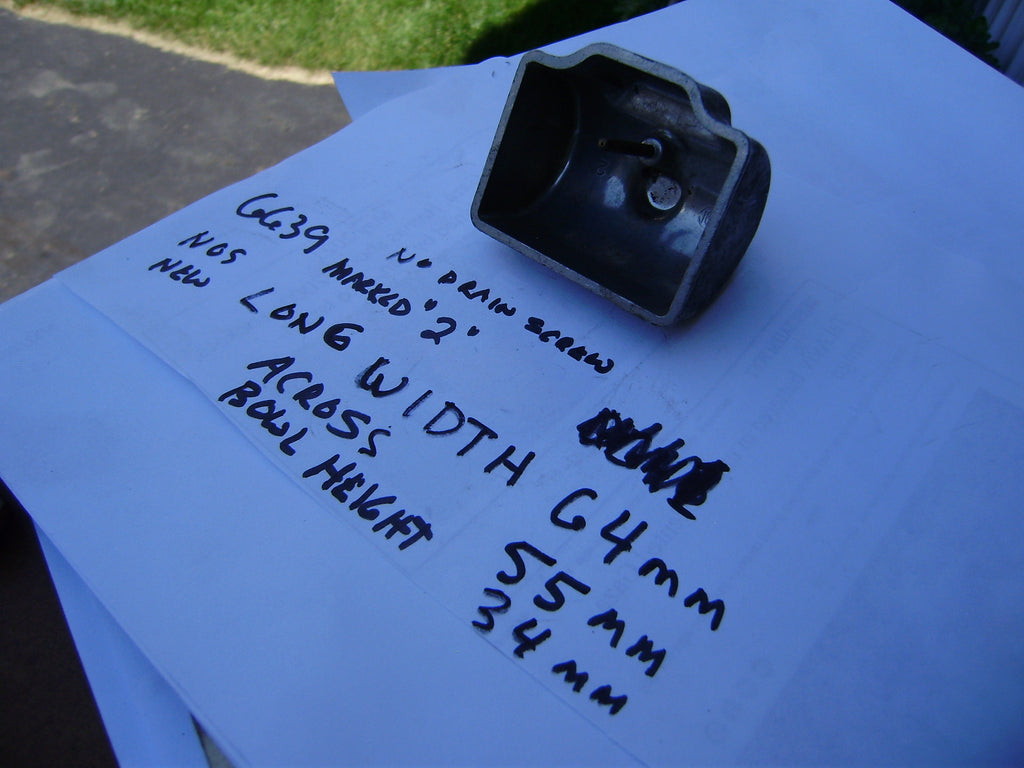 NO DRAIN SCREW
6639 MARKED "2"
NOS
NEW
LONG WIDTH 64mm
ACROSS 55mm
BOWL HEIGHT 34mm